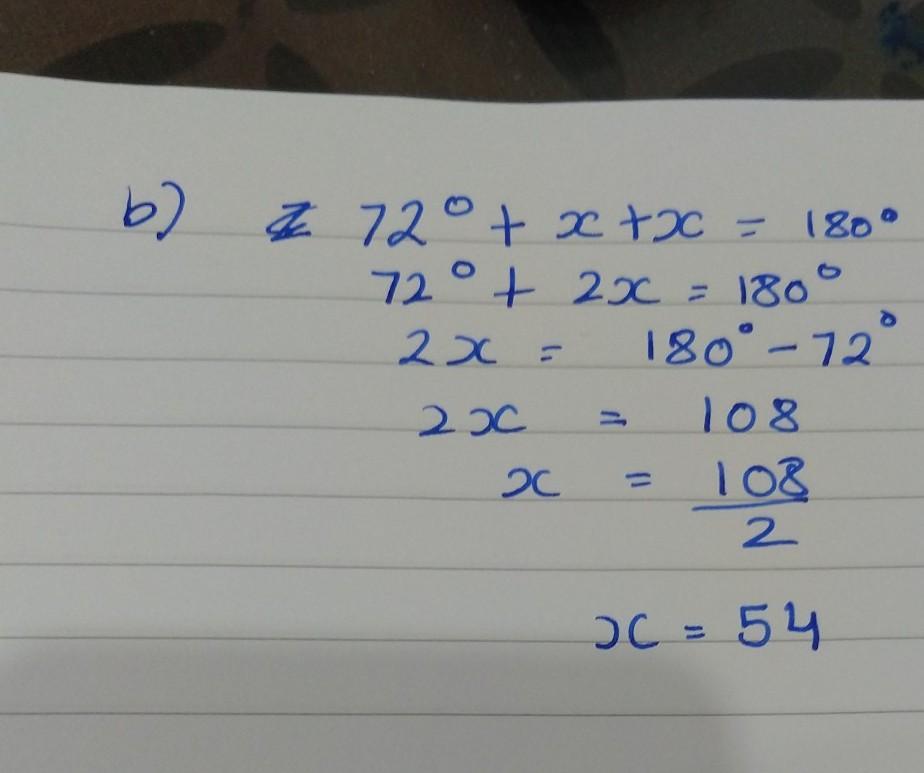 b) 72° + x + x = 180°
72° + 2x = 180°
2x = 180° - 72°
2x = 108
x = 108/2
x = 54